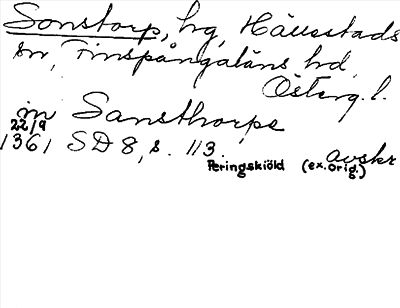 Sonstorp, hg, Hällestads
sn, Finspångaläns hd,
Österg. l.
in Sansthorpe
22/9
1361 SD 8, s. 113. avskr
Peringskiöld (ex. orig.)